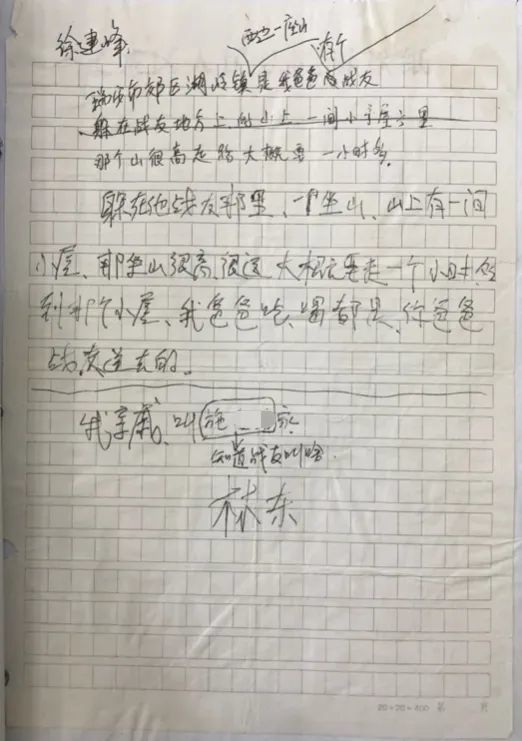 徐建峰.
西边一座山 有个
瑞安市郊区湖岭镇是我爸爸的战友
躲在战友地方上的山上一间小屋里
那个山很高走路大概要一小时多.
躲在他战友那里、一个坐山、山上有一间
小屋、那坐山很高、很远 大概要走一个小时
到那个小屋、我爸爸吃、喝都是、你爸爸
战友送去的.
我亲戚、叫施 家
知道战友叫啥.
林东
20×20=400 第 页